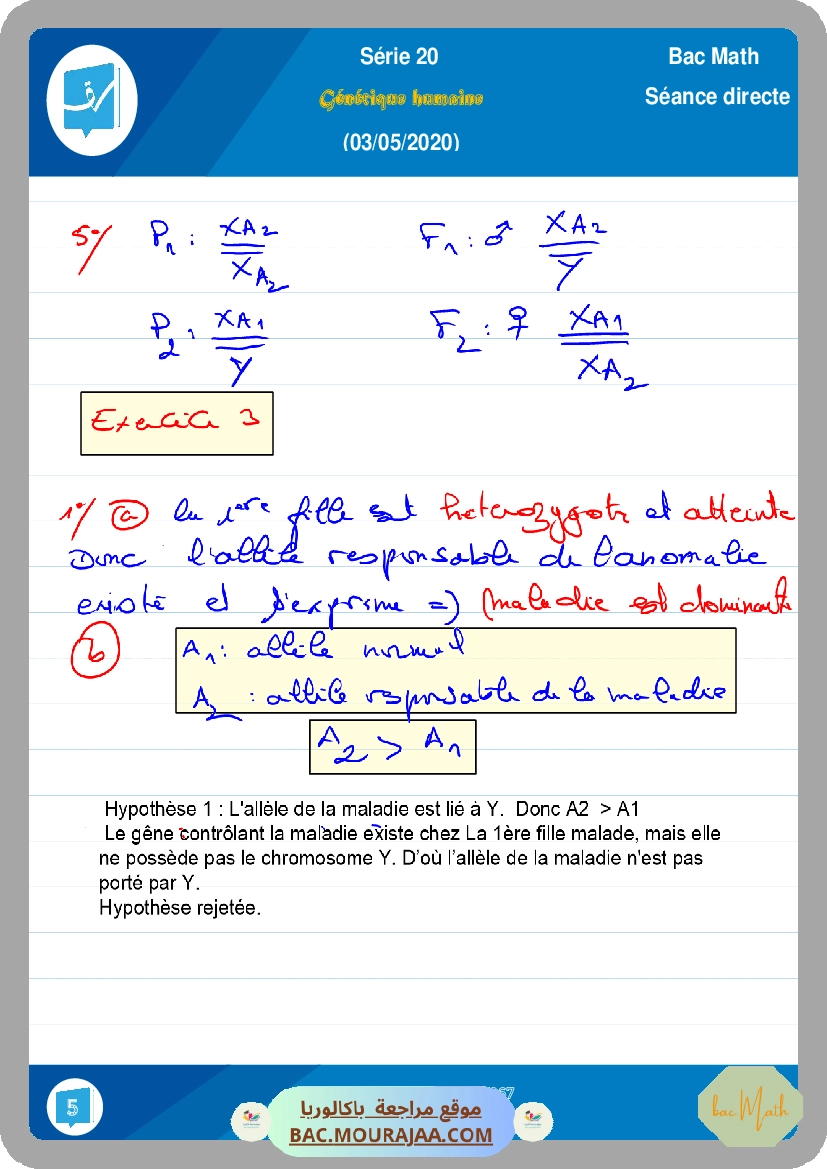 Série 20
Bac Math
Génétique humaine
Séance directe
(03/05/2020)
5°/ P1 : XA2 / XA2 F1 : ♂ XA2 / Y
P2 : XA1 / Y F2 : ♀ XA1 / XA2
Exercice 3
1°/ a la 1ère fille est hétérozygote et atteinte
Donc l'allèle responsable de l'anomalie
existe et s'exprime => maladie est dominante
b A1 : allèle normal
A2 : allèle responsable de la maladie
A2 > A1
Hypothèse 1 : L'allèle de la maladie est lié à Y. Donc A2 > A1
Le gêne contrôlant la maladie existe chez La 1ère fille malade, mais elle
ne possède pas le chromosome Y. D'où l'allèle de la maladie n'est pas
porté par Y.
Hypothèse rejetée.
5
موقع مراجعة باكالوريا
BAC.MOURAJAA.COM
bac Math